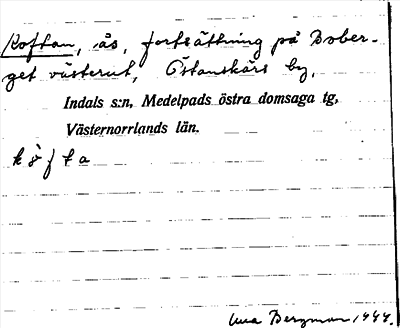 Koftan, ås, fortsättning på Bober-
get västerut, Östanskärs by,
Indals s:n, Medelpads östra domsaga tg,
Västernorrlands län.
kòfta
Bergman 1944.